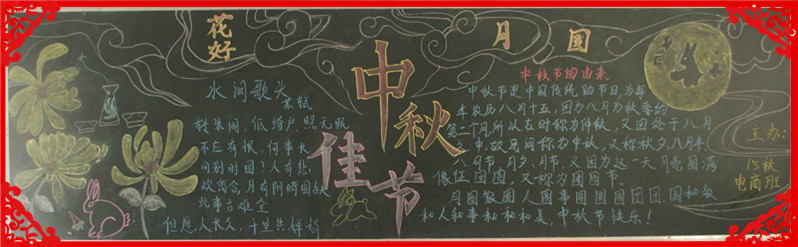 花好
月圆
中秋
佳节
水调歌头
苏轼
转朱阁,低绮户,照无眠
不应有恨,何事长
向别时圆?人有悲
欢离合,月有阴晴圆缺
此事古难全
但愿人长久,千里共婵娟
中秋节的由来
中秋节是中国传统的节日,为每
年农历八月十五,因为八月为秋季的
第二个月,所以古时称为仲秋,又因处于八月
中,故民间称为中秋,又称秋夕、八月半
八月节、月夕、月节,又因为这一天月亮圆满
像征团圆,又称为团圆节。
月圆家圆人圆事圆圆圆团团,国和家
和人和事和和和美,中秋节快乐!
主办:
15秋
电商班